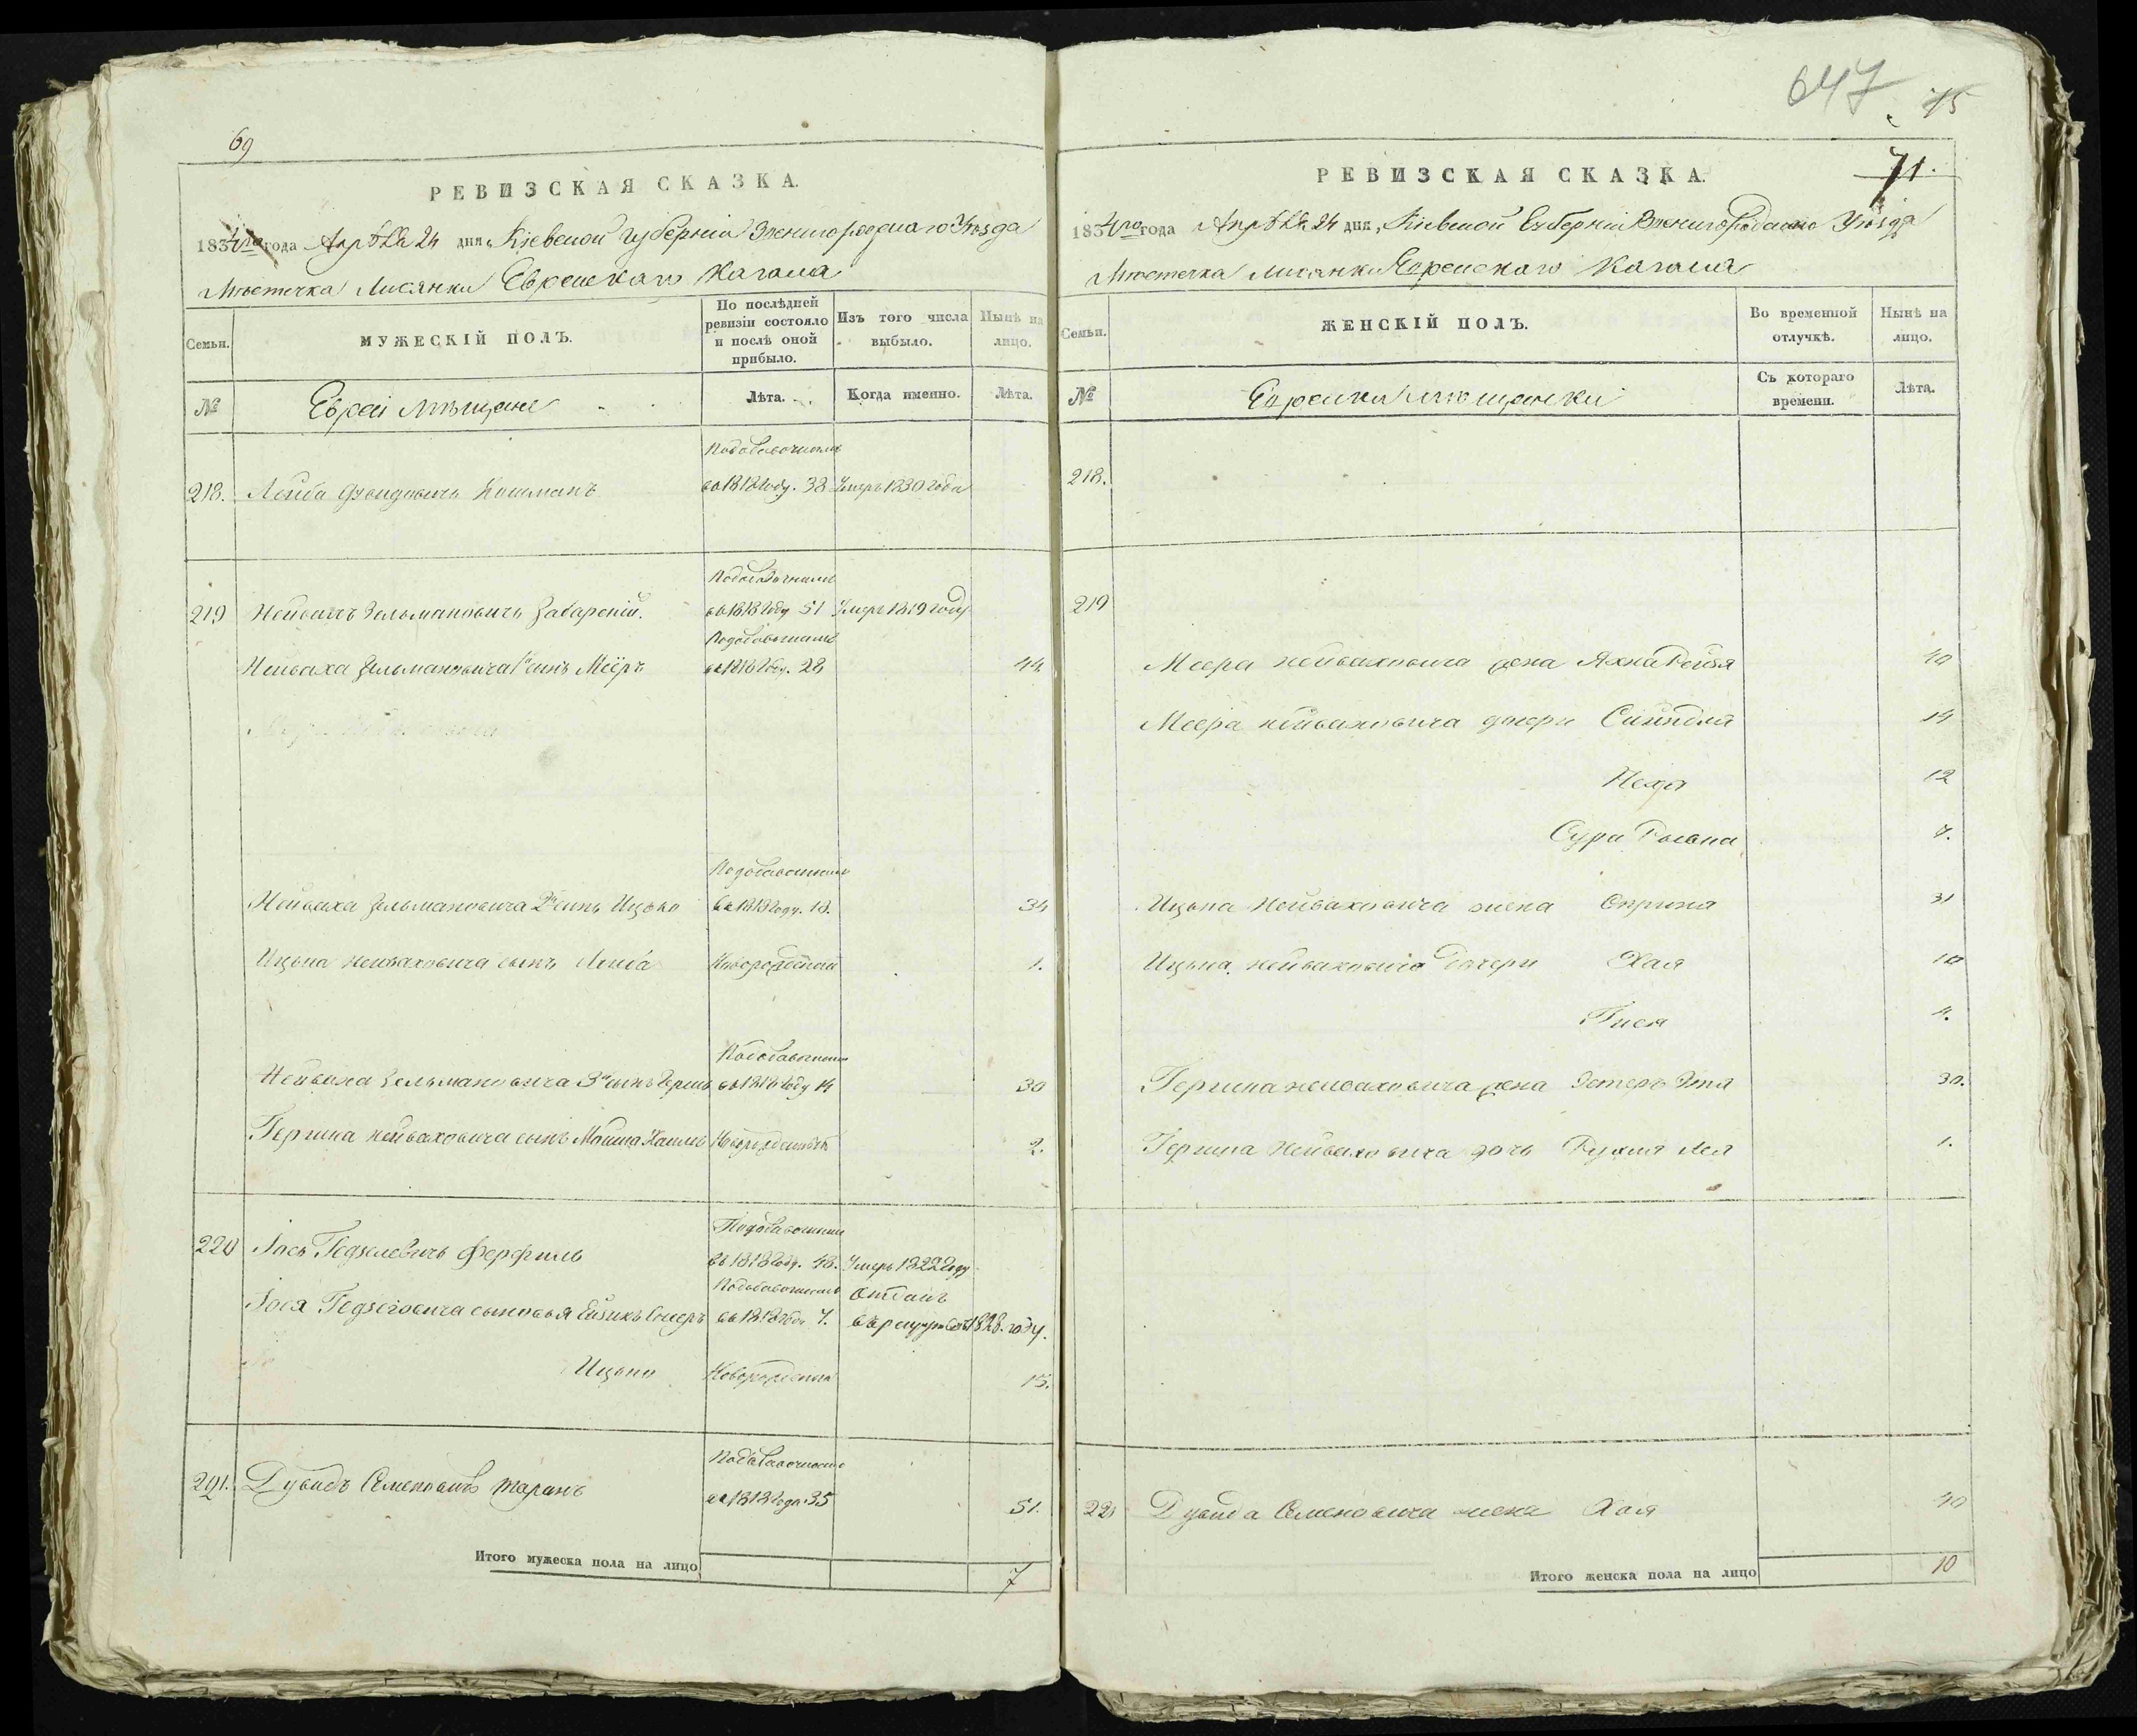 69
РЕВИЗСКАЯ СКАЗКА.
1834го года Апрѣля 24 дня, Кіевской Губерніи Звенигородскаго Уѣзда
Мѣстечка Лисянки Еврейскаго Кагала
Семьи.
МУЖЕСКІЙ ПОЛЪ.
По послѣдней ревизіи состояло и послѣ оной прибыло.
Изъ того числа выбыло.
Нынѣ на лицо.
№
Евреи Мѣщане
Лѣта.
Когда именно.
Лѣта.
218. Лейба Кошманъ
въ 1818 году. 38 Умеръ 1830 года
219 Зельмановичъ Заварскій.
въ 1818 году 51 Умеръ 1819 году
Зельмановича 1й сынъ Меѣръ
въ 1818 году. 28 44
Зельмановича 2й сынъ Ицько
въ 1818 году. 18. 34
Ицька Нейваховича сынъ Лейба Новорожденный 1.
Нейваха Зельмановича 3й сынъ Гершъ въ 1818 году 14 30
Гершка Нейваховича сынъ Мошко Новорожденный 2.
220 Іось Ферфиль
въ 1818 году. 48. Умеръ 1822 году
Отданъ
Іося сыновья Ейзикъ въ 1818 году 7. въ рекруты въ 1828. году.
Ицько Новорожденный 15.
221. Дувидъ Семеновичъ Таранъ
въ 1818 году 35 51.
Итого мужеска пола на лицо 7
647
75
71.
РЕВИЗСКАЯ СКАЗКА.
1834го года Апрѣля 24 дня, Кіевской Губерніи Звенигородскаго Уѣзда
Мѣстечка Лисянки Еврейскаго Кагала
Семьи.
ЖЕНСКІЙ ПОЛЪ.
Во временной отлучкѣ.
Нынѣ на лицо.
№
Еврейки Мѣщанки
Съ котораго времени.
Лѣта.
218.
219
Меера Нейваховича жена Яхна Рейзя 40
Меера Нейваховича дочери 14
Неха 12
Сура 7.
Ицька Нейваховича жена 31
Ицька Нейваховича дочери Хая 10
Гися 4.
Гершка Нейваховича жена Эстеръ Этя 30.
Гершка Нейваховича дочь Рухля Лея 1.
221 Дувида Семеновича жена Хая 40
Итого женска пола на лицо 10